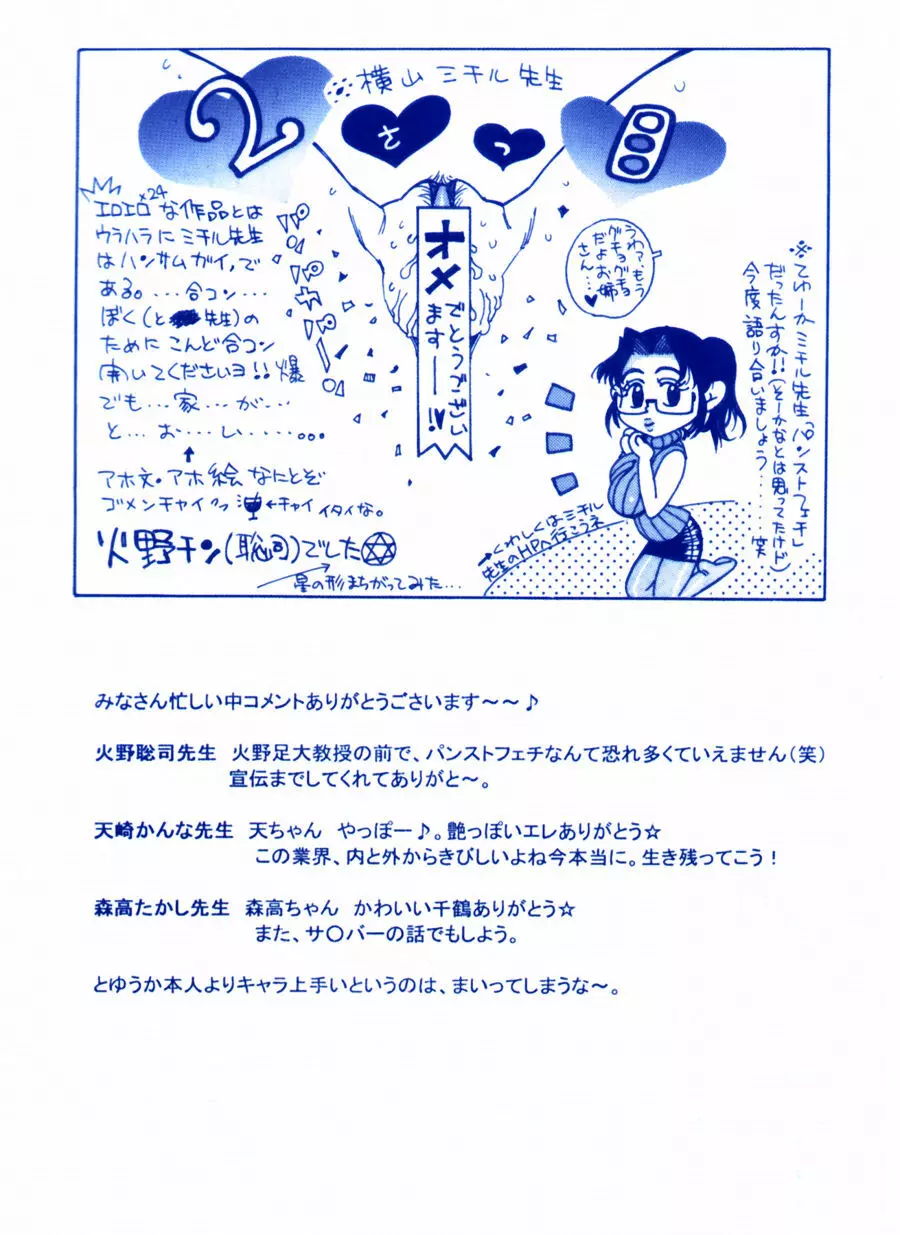 横山ミチル先生
2さつ目
エロエロx24な作品とは
ウラハラにミチル先生
はハンサムガイ、で
ある。...合コン...
ぼく(と 先生)の
ためにこんど合コン
開いてくださいヨ!!爆
でも...家...が...
と...お...し......。。。
↑
アホ文・アホ絵なにとぞ
ゴメンチャイクッ ←チャイ イタイな。
火野チン(聡司)でした
星の形まちがってみた...
パパパカパーン
オメ
でとうござい
ますーー!!♥
うわっ、もう
グチョグチョ
だよお姉
さん...♥
※てゆーかミチル先生「パンストフェチ」
だったんすか!!(そーかなとは思ってたけど)
今度語り合いましょう......笑
→くわしくはミチル
先生のHPへ行こうネ
みなさん忙しい中コメントありがとうごさいます～～♪
火野聡司先生 火野足大教授の前で、パンストフェチなんて恐れ多くていえません(笑)
宣伝までしてくれてありがと～。
天崎かんな先生 天ちゃん やっぽー♪。艶っぽいエレありがとう☆
この業界、内と外からきびしいよね今本当に。生き残ってこう!
森高たかし先生 森高ちゃん かわいい千鶴ありがとう☆
また、サ〇バーの話でもしよう。
とゆうか本人よりキャラ上手いというのは、まいってしまうな～。